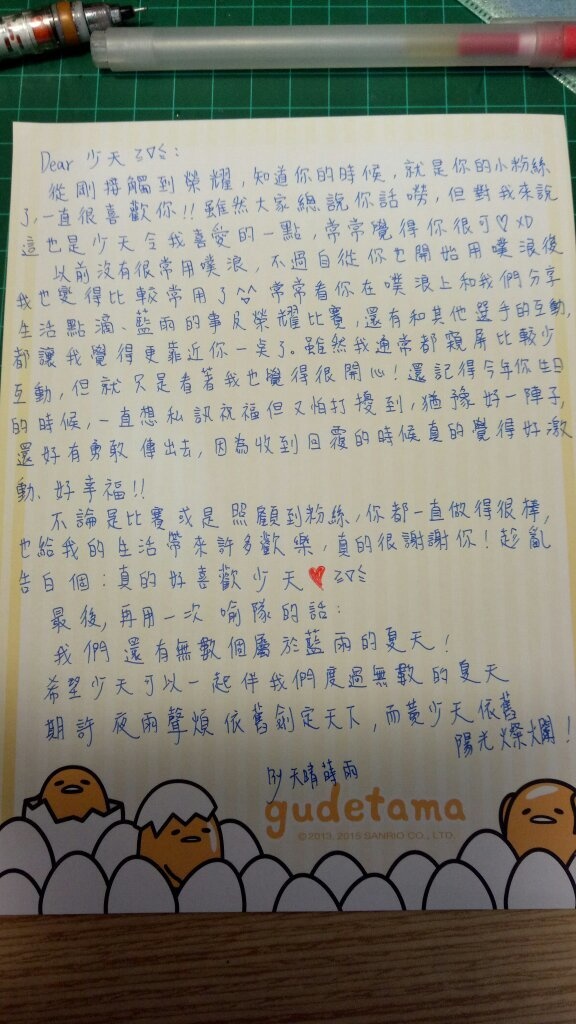 Dear 少天 ≧▽≦:
從剛接觸到榮耀,知道你的時候,就是你的小粉絲
了,一直很喜歡你!!雖然大家總說你話嘮,但對我來說
這也是少天令我喜愛的一點,常常覺得你很可♡XD
以前沒有很常用噗浪,不過自從你也開始用噗浪後
我也變得比較常用了^^常常看你在噗浪上和我們分享
生活點滴、藍雨的事及榮耀比賽,還有和其他選手的互動,
都讓我覺得更靠近你一點了。雖然我通常都窺屏比較少
互動,但就只是看著我也覺得很開心!還記得今年你生日
的時候,一直想私訊祝福但又怕打擾到,猶豫好一陣子,
還好有勇敢傳出去,因為收到回覆的時候真的覺得好激
動、好幸福!!
不論是比賽或是照顧到粉絲,你都一直做得很棒,
也給我的生活帶來許多歡樂,真的很謝謝你!趁亂
告白個:真的好喜歡少天♥≧▽≦
最後,再用一次喻隊的話:
我們還有無數個屬於藍雨的夏天!
希望少天可以一起伴我們度過無數的夏天
期許夜雨聲煩依舊劍定天下,而黃少天依舊
陽光燦爛!
By 天晴蒔雨
gudetama
©2013, 2015 SANRIO CO., LTD.